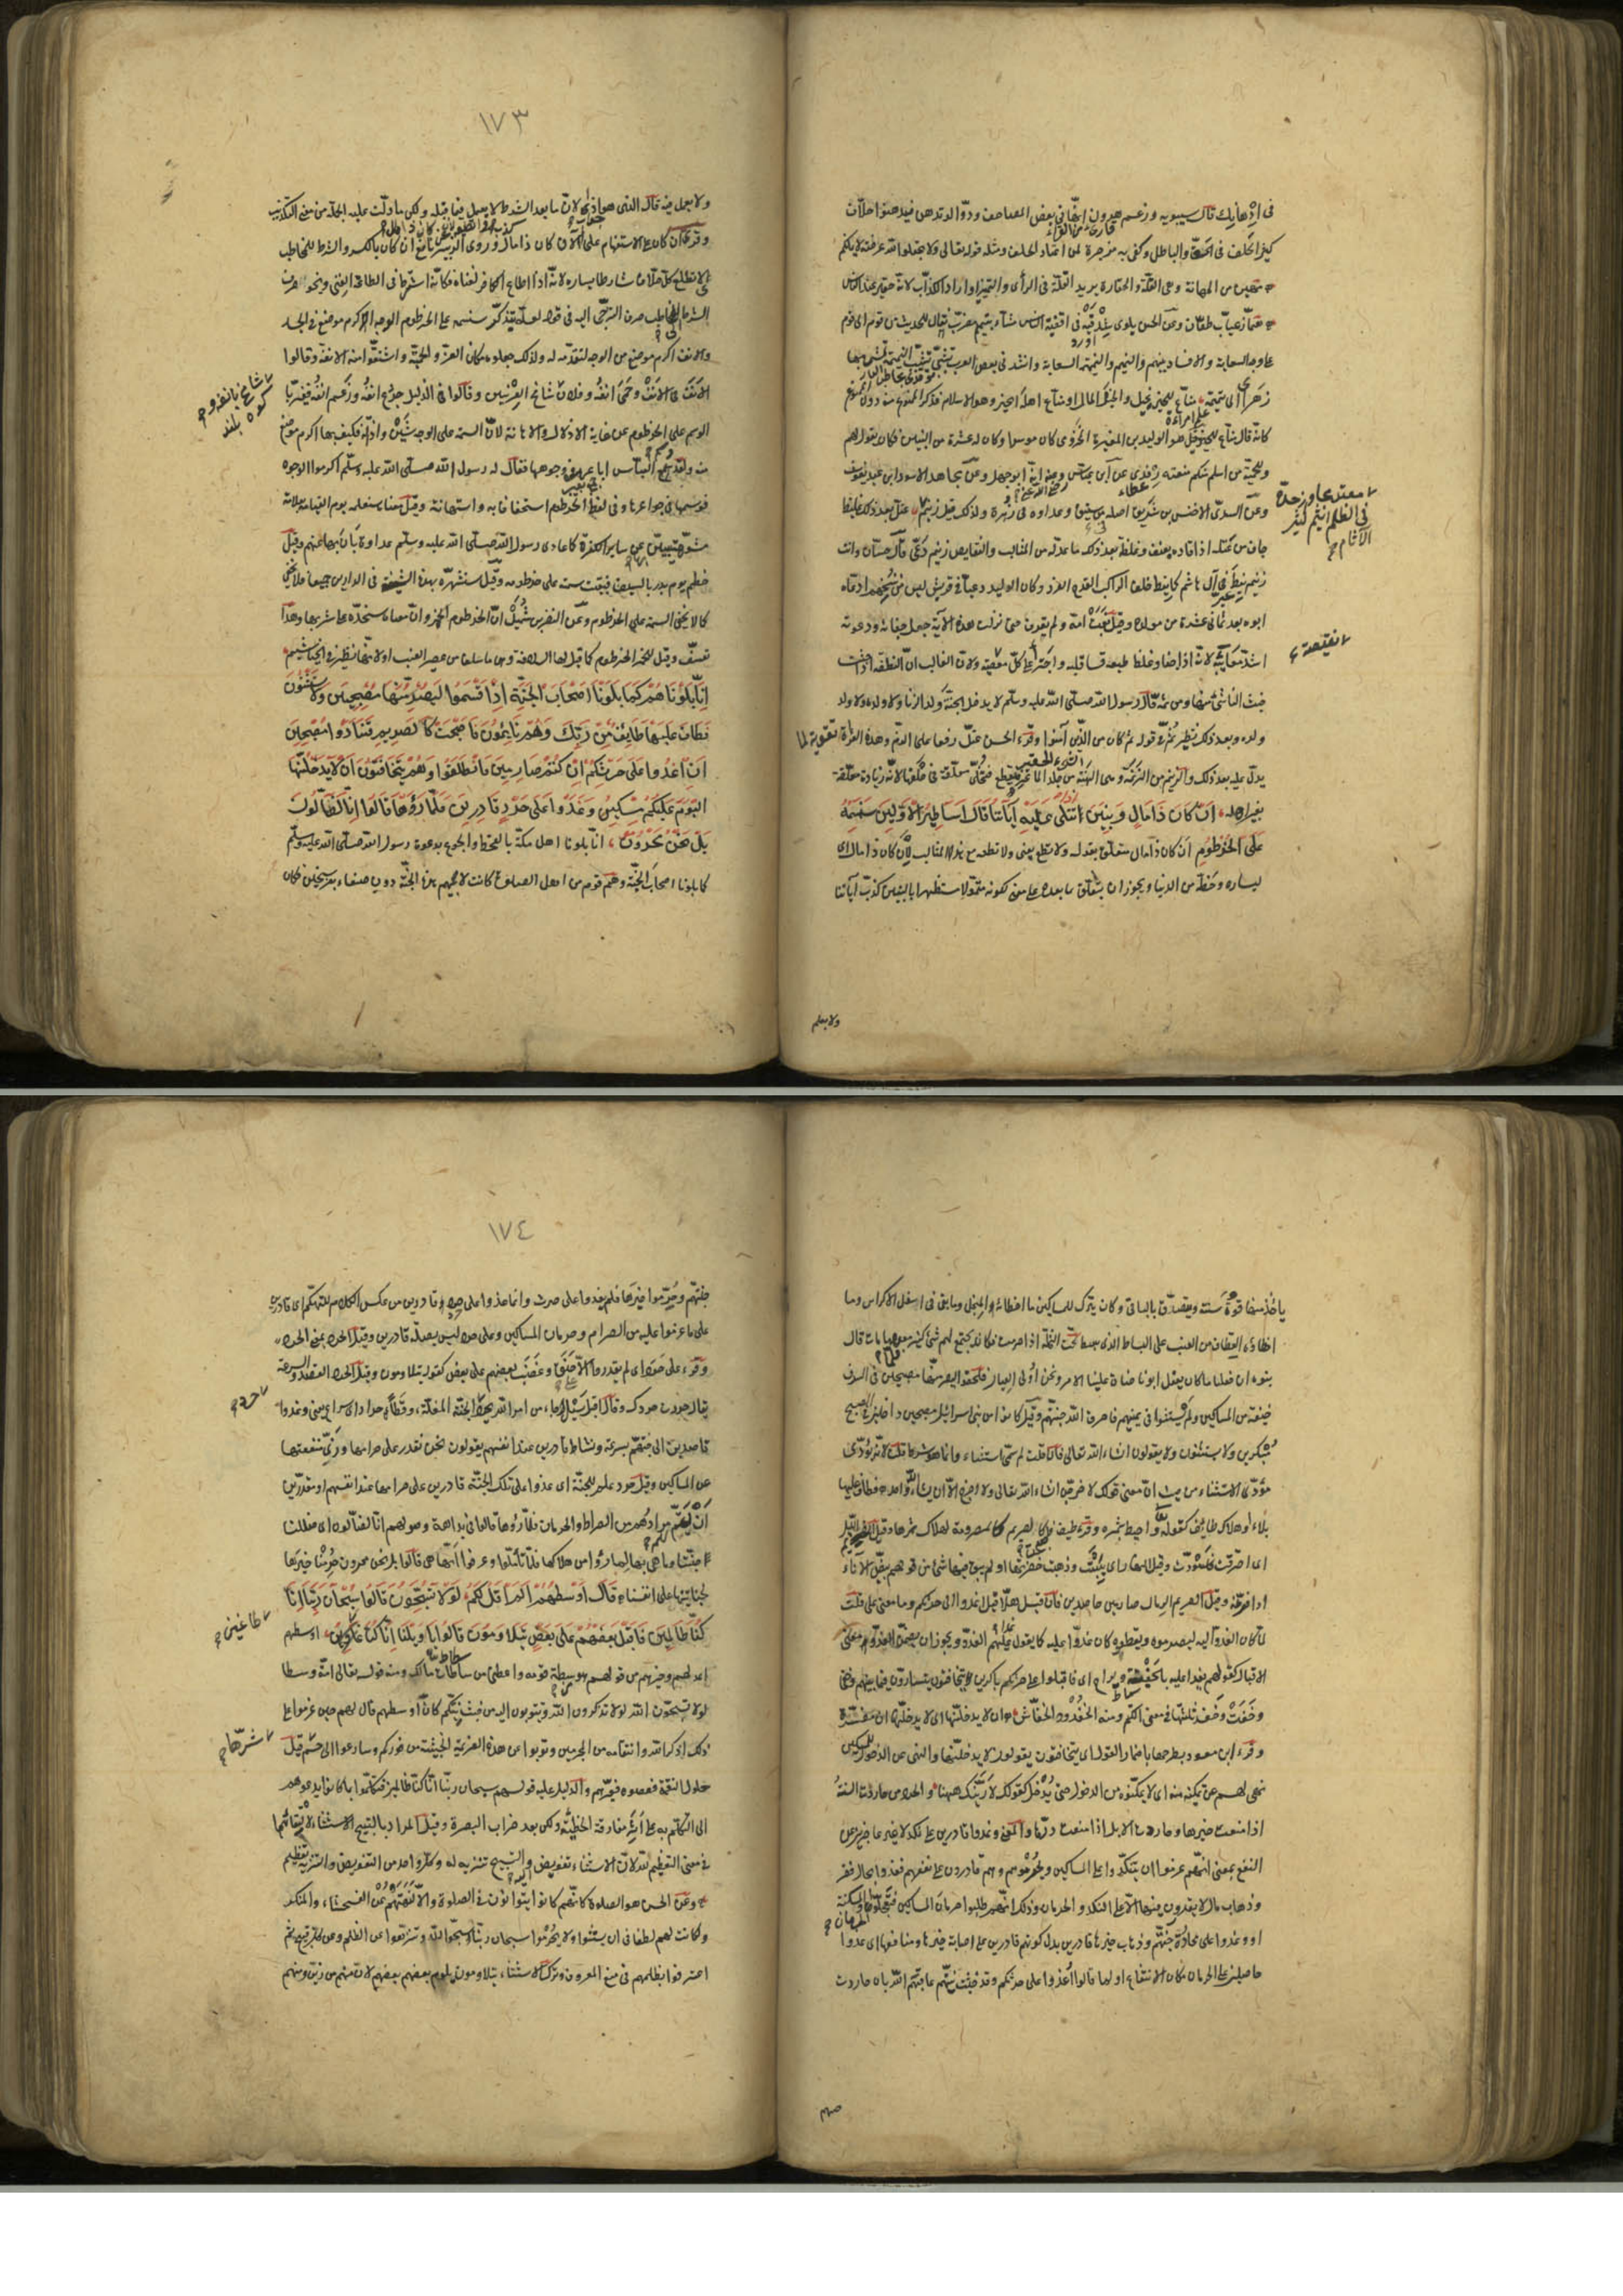 في إدهانك قال سيبويه وزعم هرون انّها في بعض المصاحف ودّوا لو تدهن فيدهنوا حلّاف
كثير الحلف في الحق والباطل وكفى به مزجرة لمن اعتاد الحلف ومثله قوله تعالى ولا تجعلوا الله عرضة لايمانكم
مهين من المهانة وهي القلّة والحقارة يريد القلّة في الرأى والتمييز او اراد الكذّاب لانّه حقير عند الناس
همّاز عيّاب طعّان وعن الحسن يلوى شدقيه في اقفية الناس مشّاء بنميم مضرّب نقّال للحديث من قوم الى قوم
على وجه السعاية والافساد بينهم والنميم والنميمة السعاية وانشد في بعض العرب تشبّبى تشبّب النميمة تمشى بها
زهرا الى تميمة منّاع للخير بخيل والخير المال او منّاع اهله الخير وهو الاسلام فذكر الممنوع منه دون الممنوع
كانّه قال منّاع من الخير قيل هو الوليد بن المغيرة المخزومى كان موسرا وكان له عشرة من البنين فكان يقول لهم
وللحمته من اسلم منكم منعته رفدى عن ابن عباس وعنه انّه ابو جهل وعن مجاهد الاسود ابن عبد يغوث
وعن السدّى الاخنس بن شريق اصله من ثقيف وعداده في زهرة ولذلك قيل زنيم عتلّ بعد ذلك غليظ
جاف من عتله اذا قاده بعنف وغلظة بعد ذلك ما عدّ له من المثالب والنقايص زنيم دعىّ قال حسّان وانت
زنيم نيط في آل هاشم كما نيط خلف الراكب القدح الفرد وكان الوليد دعيّا في قريش ليس من سنخهم ادّعاه
ابوه بعد ثمانى عشرة من مولده وقيل بغت امّه ولم يعرف حتى نزلت هذه الآية جعل جفاءه ودعوته
اشدّ معايبه لانّه اذا جفا وغلظ طبعه قسا قلبه واجترأ على كلّ معصية ولانّ الغالب انّ النطفة اذا خبثت
خبث الناشئ منها ومن ثمّه قال رسول الله صلّى الله عليه وسلم لا يدخل الجنّة ولد الزنا ولا ولده ولا ولد
ولده وبعد ذلك نظير ثمّ في قوله ثم كان من الّذين آمنوا وقرء الحسن عتلّ رفعا على الذم وهذه القراءة تقوية لما
يدلّ عليه بعد ذلك والزنيم من الزنمة وهى الهنة من جلد الماعزة تقطع فتخلّى معلّقة في حلقها لانّه زيادة معلّقة
بغير اهله ان كان ذا مال وبنين اذا تتلى عليه آياتنا قال اساطير الاوّلين سنسمه
على الخرطوم ان كان ذا مال متعلّق بقوله ولا تطع يعنى ولا تطعه مع هذه المثالب لان كان ذا مال اى
ليساره وحظّه من الدنيا ويجوز ان يتعلّق بما بعده على معنى لكونه متموّلا مستظهرا بالبنين كذّب آياتنا
معتد مجاوز حدّه
في الظلم اثيم كثير
الآثام
نقيصة
ولا يعمل
١٧٣
ولا يعمل فيه قال الذى هو اذا لانّ ما بعد الشرط لا يعمل فيما قبله ولكن ما دلّت عليه الجملة من معنى التكذيب
وقرء أان كان على الاستفهام على ألان كان ذا مال وروى الزبيرى عن نافع ان كان بالكسر والشرط للمخاطب
اى لا تطع كلّ حلّاف شارطا يساره لانّه اذا اطاع الكافر لغناه فكانّه اشترط في الطاعة الغنى ونحو صرف
الشرط الى المخاطب صرف الترجّى اليه في قوله لعلّه يتذكّر سنسمه على الخرطوم الوجه اكرم موضع في الجسد
والانف اكرم موضع من الوجه لتقدّمه له ولذلك جعلوه مكان العزّ والحميّة واشتقّوا منه الانفة وقالوا
الانف في الانف وحمى انفه وفلان شامخ العرنين وقالوا في الذليل جدع انفه ورغم انفه فعبّر با
الوسم على الخرطوم عن غاية الاذلال والاهانة لانّ السمة على الوجه شين واذالة فكيف بها على اكرم موضع
منه ولقد وسم العبّاس اباعره في وجوهها فقال له رسول الله صلّى الله عليه وسلّم اكرموا الوجوه
فوسمها في جواعرها وفي لفظ الخرطوم استخفاف به واستهانة وقيل معناه سنعلّمه يوم القيامة بعلامة
مشوّهة يبين عن ساير الكفرة كما عادى رسول الله صلّى الله عليه وسلّم عداوة بان بها عنهم وقيل
خطم يوم بدر بالسيف فبقيت سمة على خرطومه وقيل سنشهّره بهذه الشتيمة في الدارين جميعا فلا تخفى
كما لا تخفى السمة على الخرطوم وعن النضر بن شميل انّ الخرطوم الخمر وانّ معناه سنحدّه على شربها وهذا
تعسّف وقيل للخمر الخرطوم كما قيل لها السلافة وهى ما سلف من عصير العنب او لانها تطير في الخياشيم
انّا بلوناهم كما بلونا اصحاب الجنّة اذ اقسموا ليصرمنّها مصبحين ولا يستثنون
فطاف عليها طايف من ربّك وهم نايمون فاصبحت كالصريم فتنادوا مصبحين
ان اغدوا على حرثكم ان كنتم صارمين فانطلقوا وهم يتخافتون ان لا يدخلنّها
اليوم عليكم مسكين وغدوا على حرد قادرين فلمّا رؤها قالوا انّا لضالّون
بل نحن محرومون انّا بلونا اهل مكّة بالقحط والجوع بدعوة رسول الله صلّى الله عليه وسلّم
كما بلونا اصحاب الجنّة وهم قوم من اهل الصلوة كانت لابيهم هذه الجنّة دون صنعاء بفرسخين فكان
يأخذ منها قوت سنته ويتصدّق بالباقى وكان يترك للمساكين ما اخطأه المنجل وما بقى في اسفل الاكداس وما
اخطاءه القطاف من العنب على البساط الذى يبسط تحت النخلة اذا صرمت فكان يجتمع لهم شئ كثير فلما مات قال
بنوه ان فعلنا ما كان يفعل ابونا ضاق علينا الامر ونحن أولى العيال فحلفوا ليصرمنّها مصبحين في السدف
خيفة من المساكين ولم يستثنوا في يمينهم فاحرق الله جنّتهم وقيل كانوا من بنى اسرائيل مصبحين داخلين في الصبح
مبكرين ولا يستثنون ولا يقولون ان شاء الله تعالى فان قلت لم سمّى استثناء وانما هو شرط قلت لانّه يؤدّى
مؤدّى الاستثناء من حيث انّ معنى قولك لاخرجنّ ان شاء الله تعالى ولا اخرج الّا ان يشاء الله واحد فطاف عليها
بلاء او هلاك طايف كقوله واحيط بثمره وقرء طيف كالصريم كالمصرومة لهلاك ثمرها وقيل الصريم الليل
اى احترقت فاسودّت وقيل النهار اى يبست وذهبت خضرتها او لم يبق فيها شئ من قولهم بيّض الاناء
اذا فرّغه وقيل الصريم الرمال صارمين حاصدين فان قيل هلّا قيل اغدوا الى حرثكم وما معنى على قلت
لمّا كان الغدوّ اليه ليصرموه ويقطعوه كان غدوّا عليه كما يقول غدا عليهم العدوّ ويجوز ان يضمّن الغدوّ معنى
الاقبال كقولهم يغدا عليه بالجفنة ويراح اى فاقبلوا على حرثكم باكرين يتخافتون يتسارّون فيما بينهم وخفى
وخفت وخفد ثلثتها في معنى الكتم ومنه الخفدود للخفّاش ان لا يدخلنّها اى لا يدخلنّها ان مفسّرة
وقرء ابن مسعود بطرحها باضمار القول اى يتخافتون يقولون لا يدخلنّها والنهى عن الدخول للمسكين
نهى لهم عن تمكينه منه اى لا يمكّنوه من الدخول حتى يدخل كقولك لا ارينّك ههنا والحرد من حاردت السنة
اذا منعت خيرها وحاردت الابل اذا منعت درّها والمعنى وغدوا قادرين على نكد لا غير عاجزين عن
النفع بمعنى انّهم عزموا ان يتنكّدوا على المساكين ويحرموهم وهم قادرون على نفعهم فغدوا بحال فقر
وذهاب مال لا يقدرون فيها الّا على النكد والحرمان وذلك انّهم طلبوا حرمان المساكين فتعجّلوا الحرمان والمسكنة
او وغدوا على محاردة جنّتهم وذهاب خيرها قادرين بدل كونهم قادرين على اصابة خيرها ومنافعها اى غدوا
حاصلين على الحرمان مكان الانتفاع او لما قالوا اغدوا على حرثكم وقد خبثت نيّتهم عاقبهم الله بان حاردت
١٧٤
جنّتهم وحرّموا خيرها فلم يغدوا على حرث وانما غدوا على حرد وقادرين من عكس الكلام للتهكّم اى قادرين
على ما عزموا عليه من الصرام وحرمان المساكين وعلى حرد ليس بصلة قادرين وقيل الحرد بمعنى الحرد
وقرء على حرد اى لم يقدروا الّا على حنق وغضب بعضهم على بعض كقوله يتلاومون وقيل الحرد القصد والسرعة
يقال حردت حردك وقال اقبل سيل جاء من امر الله يحرد حرد الجنّة المغلّة وقطا حراد اى سراع يعنى وغدوا
قاصدين الى جنّتهم بسرعة ونشاط قادرين عند انفسهم يقولون نحن نقدر على صرامها وزىّ منفعتها
عن المساكين وقيل حرد علم للجنّة اى غدوا على تلك الجنّة قادرين على صرامها عند انفسهم او مقدّرين
ان يتمّ مرادهم من الصرام والحرمان فلمّا رؤها قالوا في بداهة وصولهم انّا لضالّون اى ضللنا
جنّتنا وما هى بها لما رأوا من هلاكها فلمّا تأمّلوا وعرفوا انّها هى قالوا بل نحن محرومون حرمنا خيرها
لجنايتنا على انفسنا قال اوسطهم الم اقل لكم لولا تسبّحون قالوا سبحان ربّنا انّا
كنّا ظالمين فاقبل بعضهم على بعض يتلاومون قالوا يا ويلنا انّا كنّا اوسطهم
اعدلهم وخيرهم من قولهم هو سطة قومه واعطنى من سطات مالك ومنه قوله تعالى امّة وسطا
لولا تسبّحون الله لولا تذكرون الله وتتوبون اليه من خبث نيّتكم كانّ اوسطهم قال لهم حين عزموا على
ذلك اذكروا الله وانتقامه من المجرمين وتوبوا عن هذه العزيمة الخبيثة من فوركم وسارعوا الى حسم قبل
حلول النقمة فعصوه فعيّرهم والدليل عليه قولهم سبحان ربّنا انّا كنّا ظالمين فتكلّموا بما كان يدعوهم
الى التكلّم به على اثر مفارقة الخطيئة ولكن بعد خراب البصرة وقيل المراد بالتسبيح الاستثناء لالتقائهما
في معنى التعظيم لله لانّ الاستثناء تفويض والتسبيح تنزيه له وكل واحد من التفويض والتنزيه تعظيم
وعن الحسن هو الصلوة كانّهم كانوا يتوانون في الصلوة والّا لنهتهم عن الفحشاء والمنكر
ولكانت لهم لطفا في ان يستثنوا ولا يحرموا سبحان ربّنا سبّحوا الله ونزّهوه عن الظلم وعن كل قبيح ثم
اعترفوا بظلمهم في منع المعروف وترك الاستثناء يتلاومون يلوم بعضهم بعضهم لان منهم من زيّن ومنهم
طاغين
شرّها